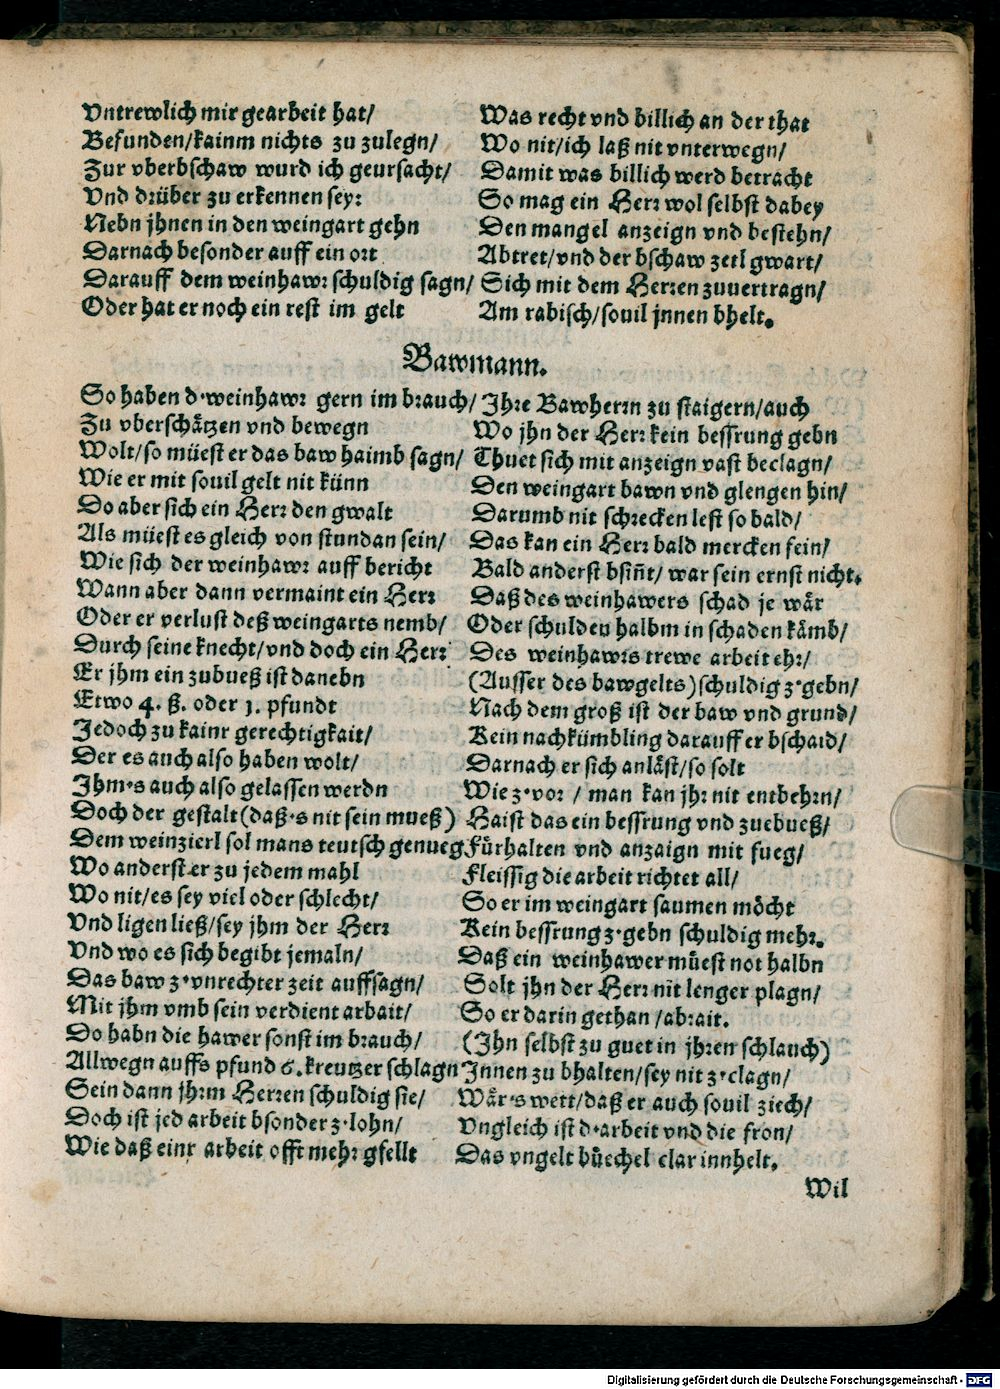 Vntrewlich mir gearbeit hat/ Was recht vnd billich an der that
Befunden/kainm nichts zu zulegn/ Wo nit/ich laß nit vnterwegn/
Zur vberbschaw wurd ich geursacht/ Damit was billich werd betracht
Vnd drüber zu erkennen sey: So mag ein Herr wol selbst dabey
Nebn jhnen in den weingart gehn Den mangel anzeign vnd bestehn/
Darnach besonder auff ein ort Abtret/vnd der bschaw zetl gwart/
Darauff dem weinhawr schuldig sagn/ Sich mit dem Herren zuuertragn/
Oder hat er noch ein rest im gelt Am rabisch/souil jnnen bhelt.
Bawmann.
So haben d·weinhawr gern im brauch/ Ihre Bawherrn zu staigern/auch
Zu vberschätzen vnd bewegn Wo jhn der Herr kein bessrung gebn
Wolt/so müest er das baw haimb sagn/ Thuet sich mit anzeign vast beclagn/
Wie er mit souil gelt nit künn Den weingart bawn vnd glengen hin/
Do aber sich ein Herr den gwalt Darumb nit schrecken lest so bald/
Als müest es gleich von stundan sein/ Das kan ein Herr bald mercken fein/
Wie sich der weinhawr auff bericht Bald anderst bsiñt/ war sein ernst nicht.
Wann aber dann vermaint ein Herr Daß des weinhawers schad je wär
Oder er verlust deß weingarts nemb/ Oder schulden halbm in schaden kämb/
Durch seine knecht/vnd doch ein Herr Des weinhawrs trewe arbeit ehr/
Er jhm ein zubueß ist danebn (Ausser des bawgelts)schuldig z·gebn/
Etwo 4. ß. oder 1. pfundt Nach dem groß ist der baw vnd grund/
Jedoch zu kainr gerechtigkait/ Kein nachkümbling darauff er bschaid/
Der es auch also haben wolt/ Darnach er sich anläst/so solt
Ihm·s auch also gelassen werdn Wie z·vor / man kan jhr nit entbehrn/
Doch der gestalt(daß·s nit sein mueß) Haist das ein bessrung vnd zuebueß/
Dem weinzierl sol mans teutsch genueg Fürhalten vnd anzaign mit fueg/
Wo anderst er zu jedem mahl Fleissig die arbeit richtet all/
Wo nit/es sey viel oder schlecht/ So er im weingart saumen möcht
Vnd ligen ließ/sey jhm der Herr Kein bessrung z·gebn schuldig mehr.
Vnd wo es sich begibt jemaln/ Daß ein weinhawer müest not halbn
Das baw z·vnrechter zeit auffsagn/ Solt jhn der Herr nit lenger plagn/
Mit jhm vmb sein verdient arbait/ So er darin gethan /abrait.
Do habn die hawer sonst im brauch/ (Ihn selbst zu guet in jhren schlauch)
Allwegn auffs pfund 6. kreutzer schlagn Innen zu bhalten/sey nit z·clagn/
Sein dann jhrm Herren schuldig sie/ Wär·s wett/daß er auch souil ziech/
Doch ist jed arbeit bsonder z·lohn/ Vngleich ist d·arbeit vnd die fron/
Wie daß einr arbeit offt mehr gfellt Das vngelt büechel clar innhelt.
Wil
Digitalisierung gefördert durch die Deutsche Forschungsgemeinschaft - DFG